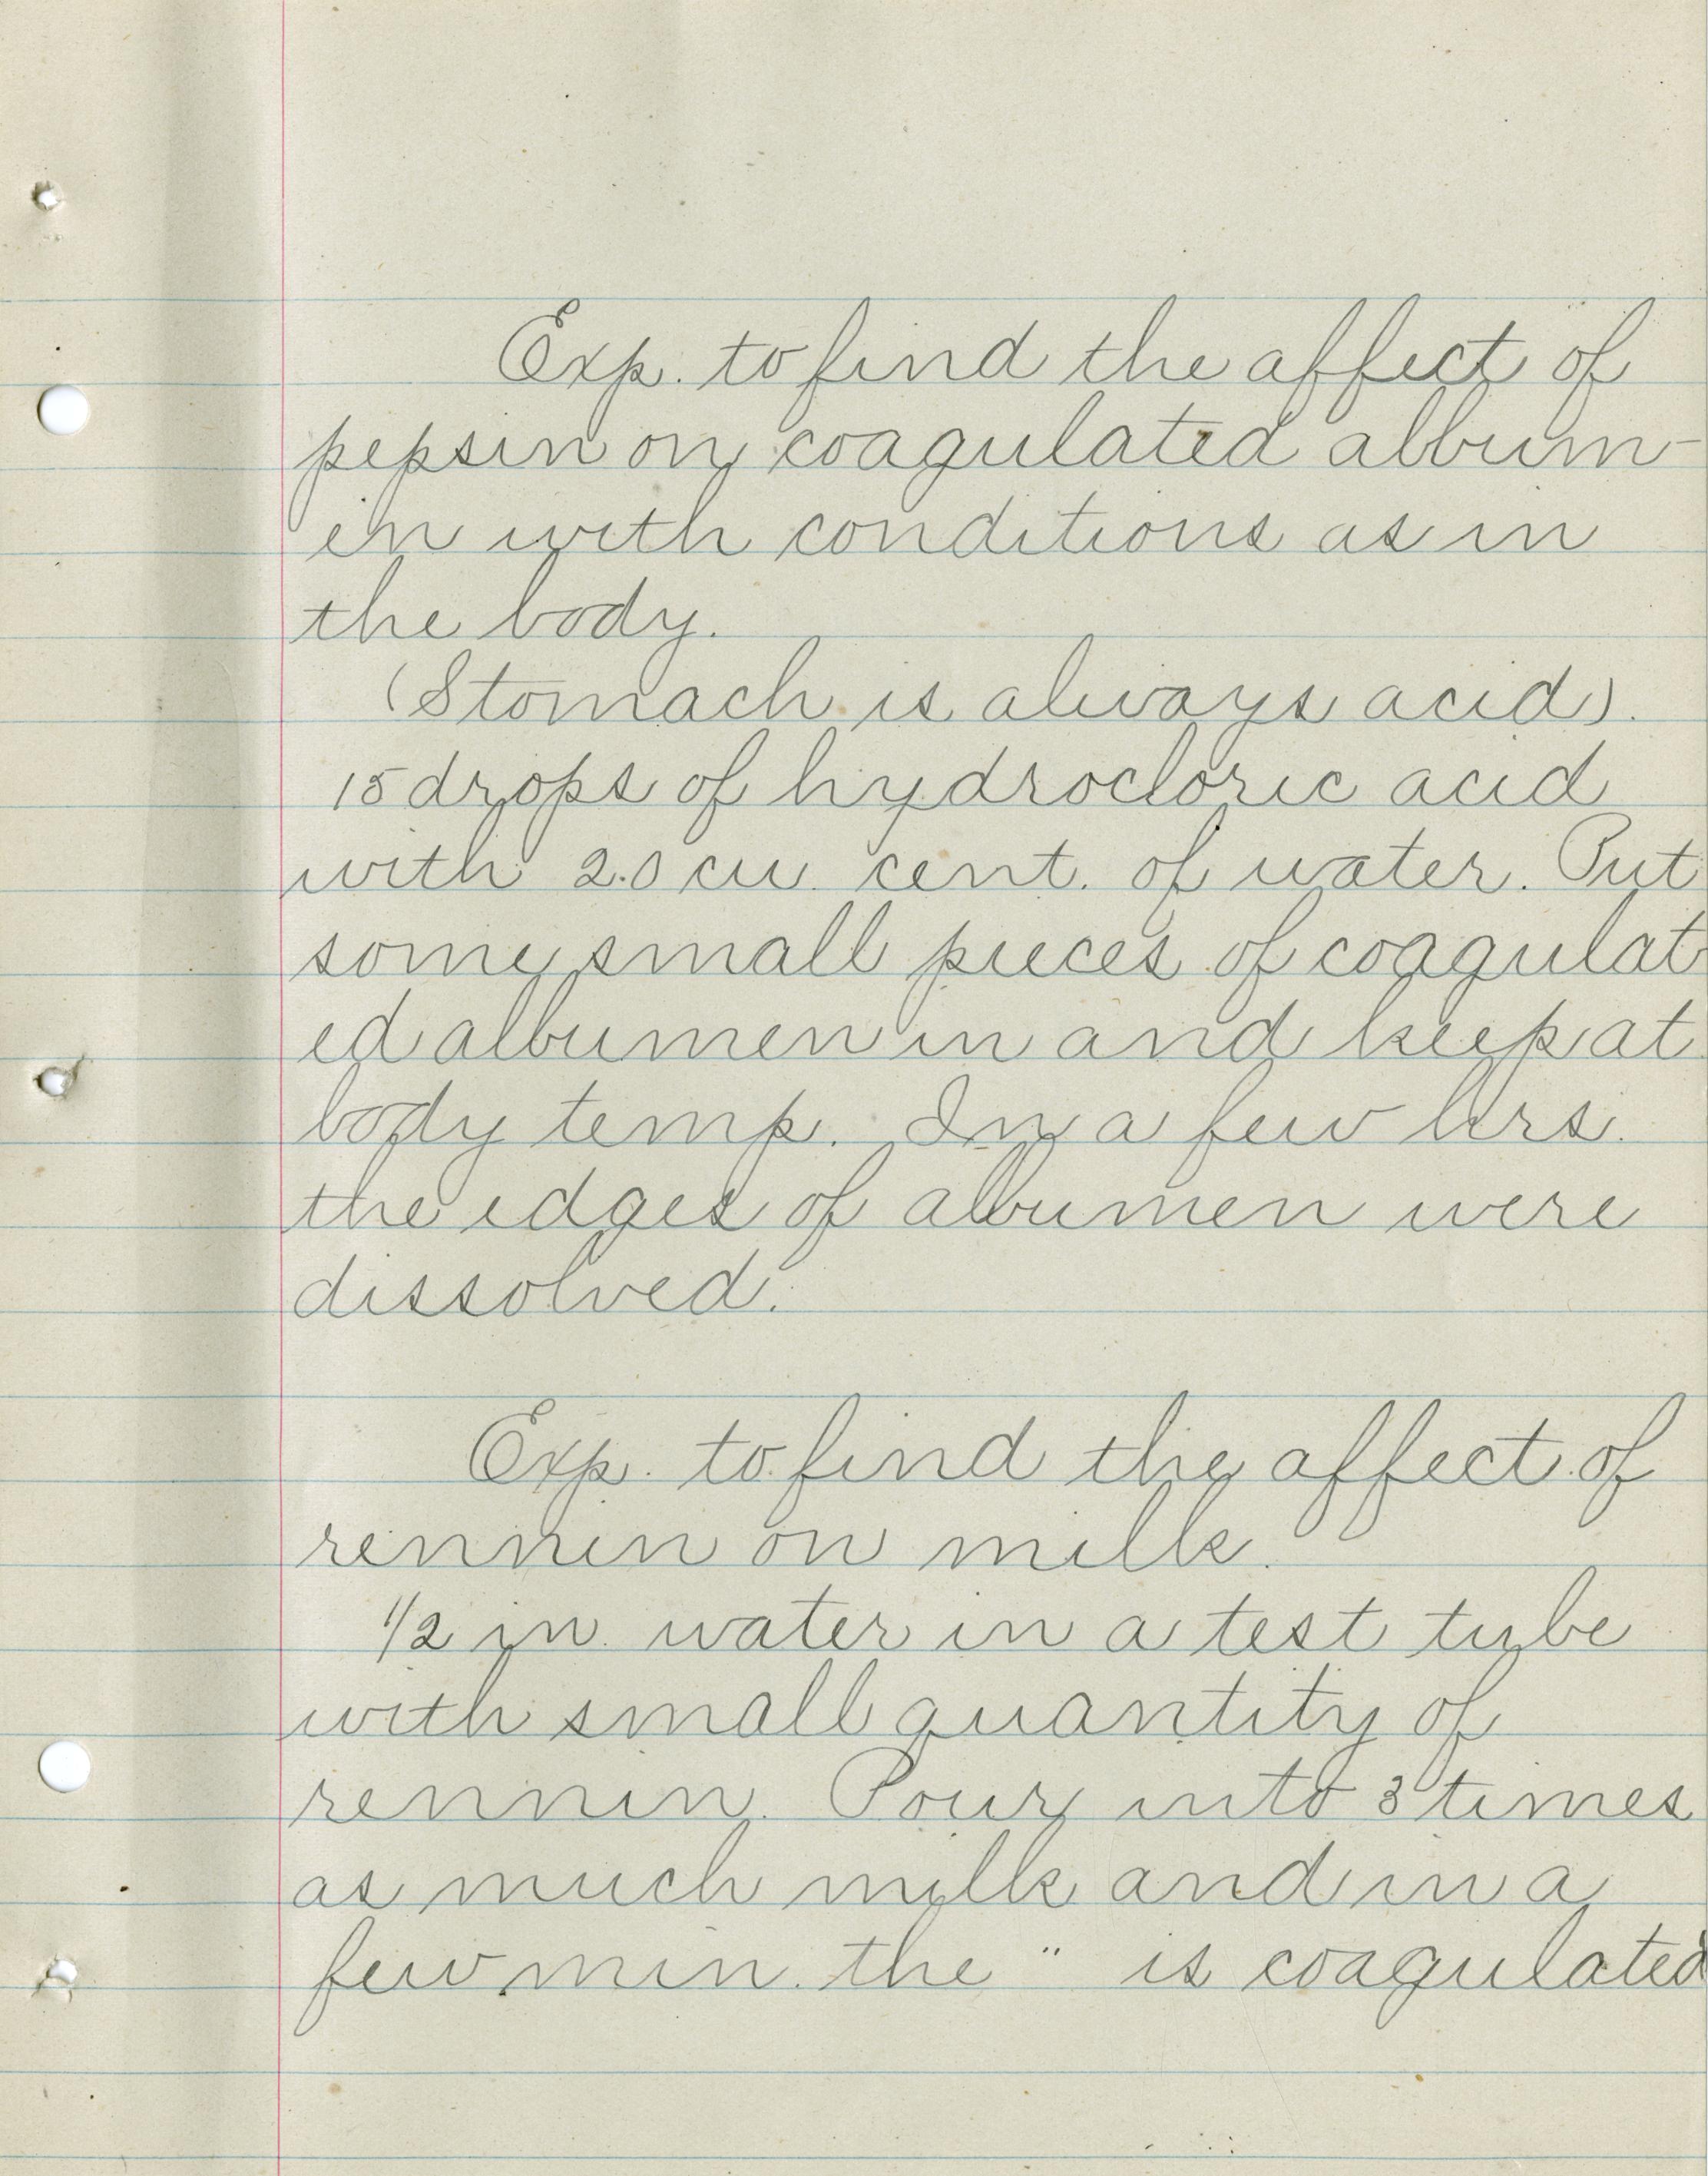 Exp. to find the affect of
pepsin on coagulated album-
en with conditions as in
the body.
(Stomach is always acid).
15 drops of hydrocloric acid
with 2.0 cu. cent. of water. Put
some small pieces of coagulat
ed albumen in and keep at
body temp. In a few hrs.
the edges of albumen were
dissolved.
Exp. to find the affect of
rennin on milk.
1/2 in. water in a test tube
with small quantity of
rennin. Pour into 3 times
as much milk and in a
few min. the " is coagulated